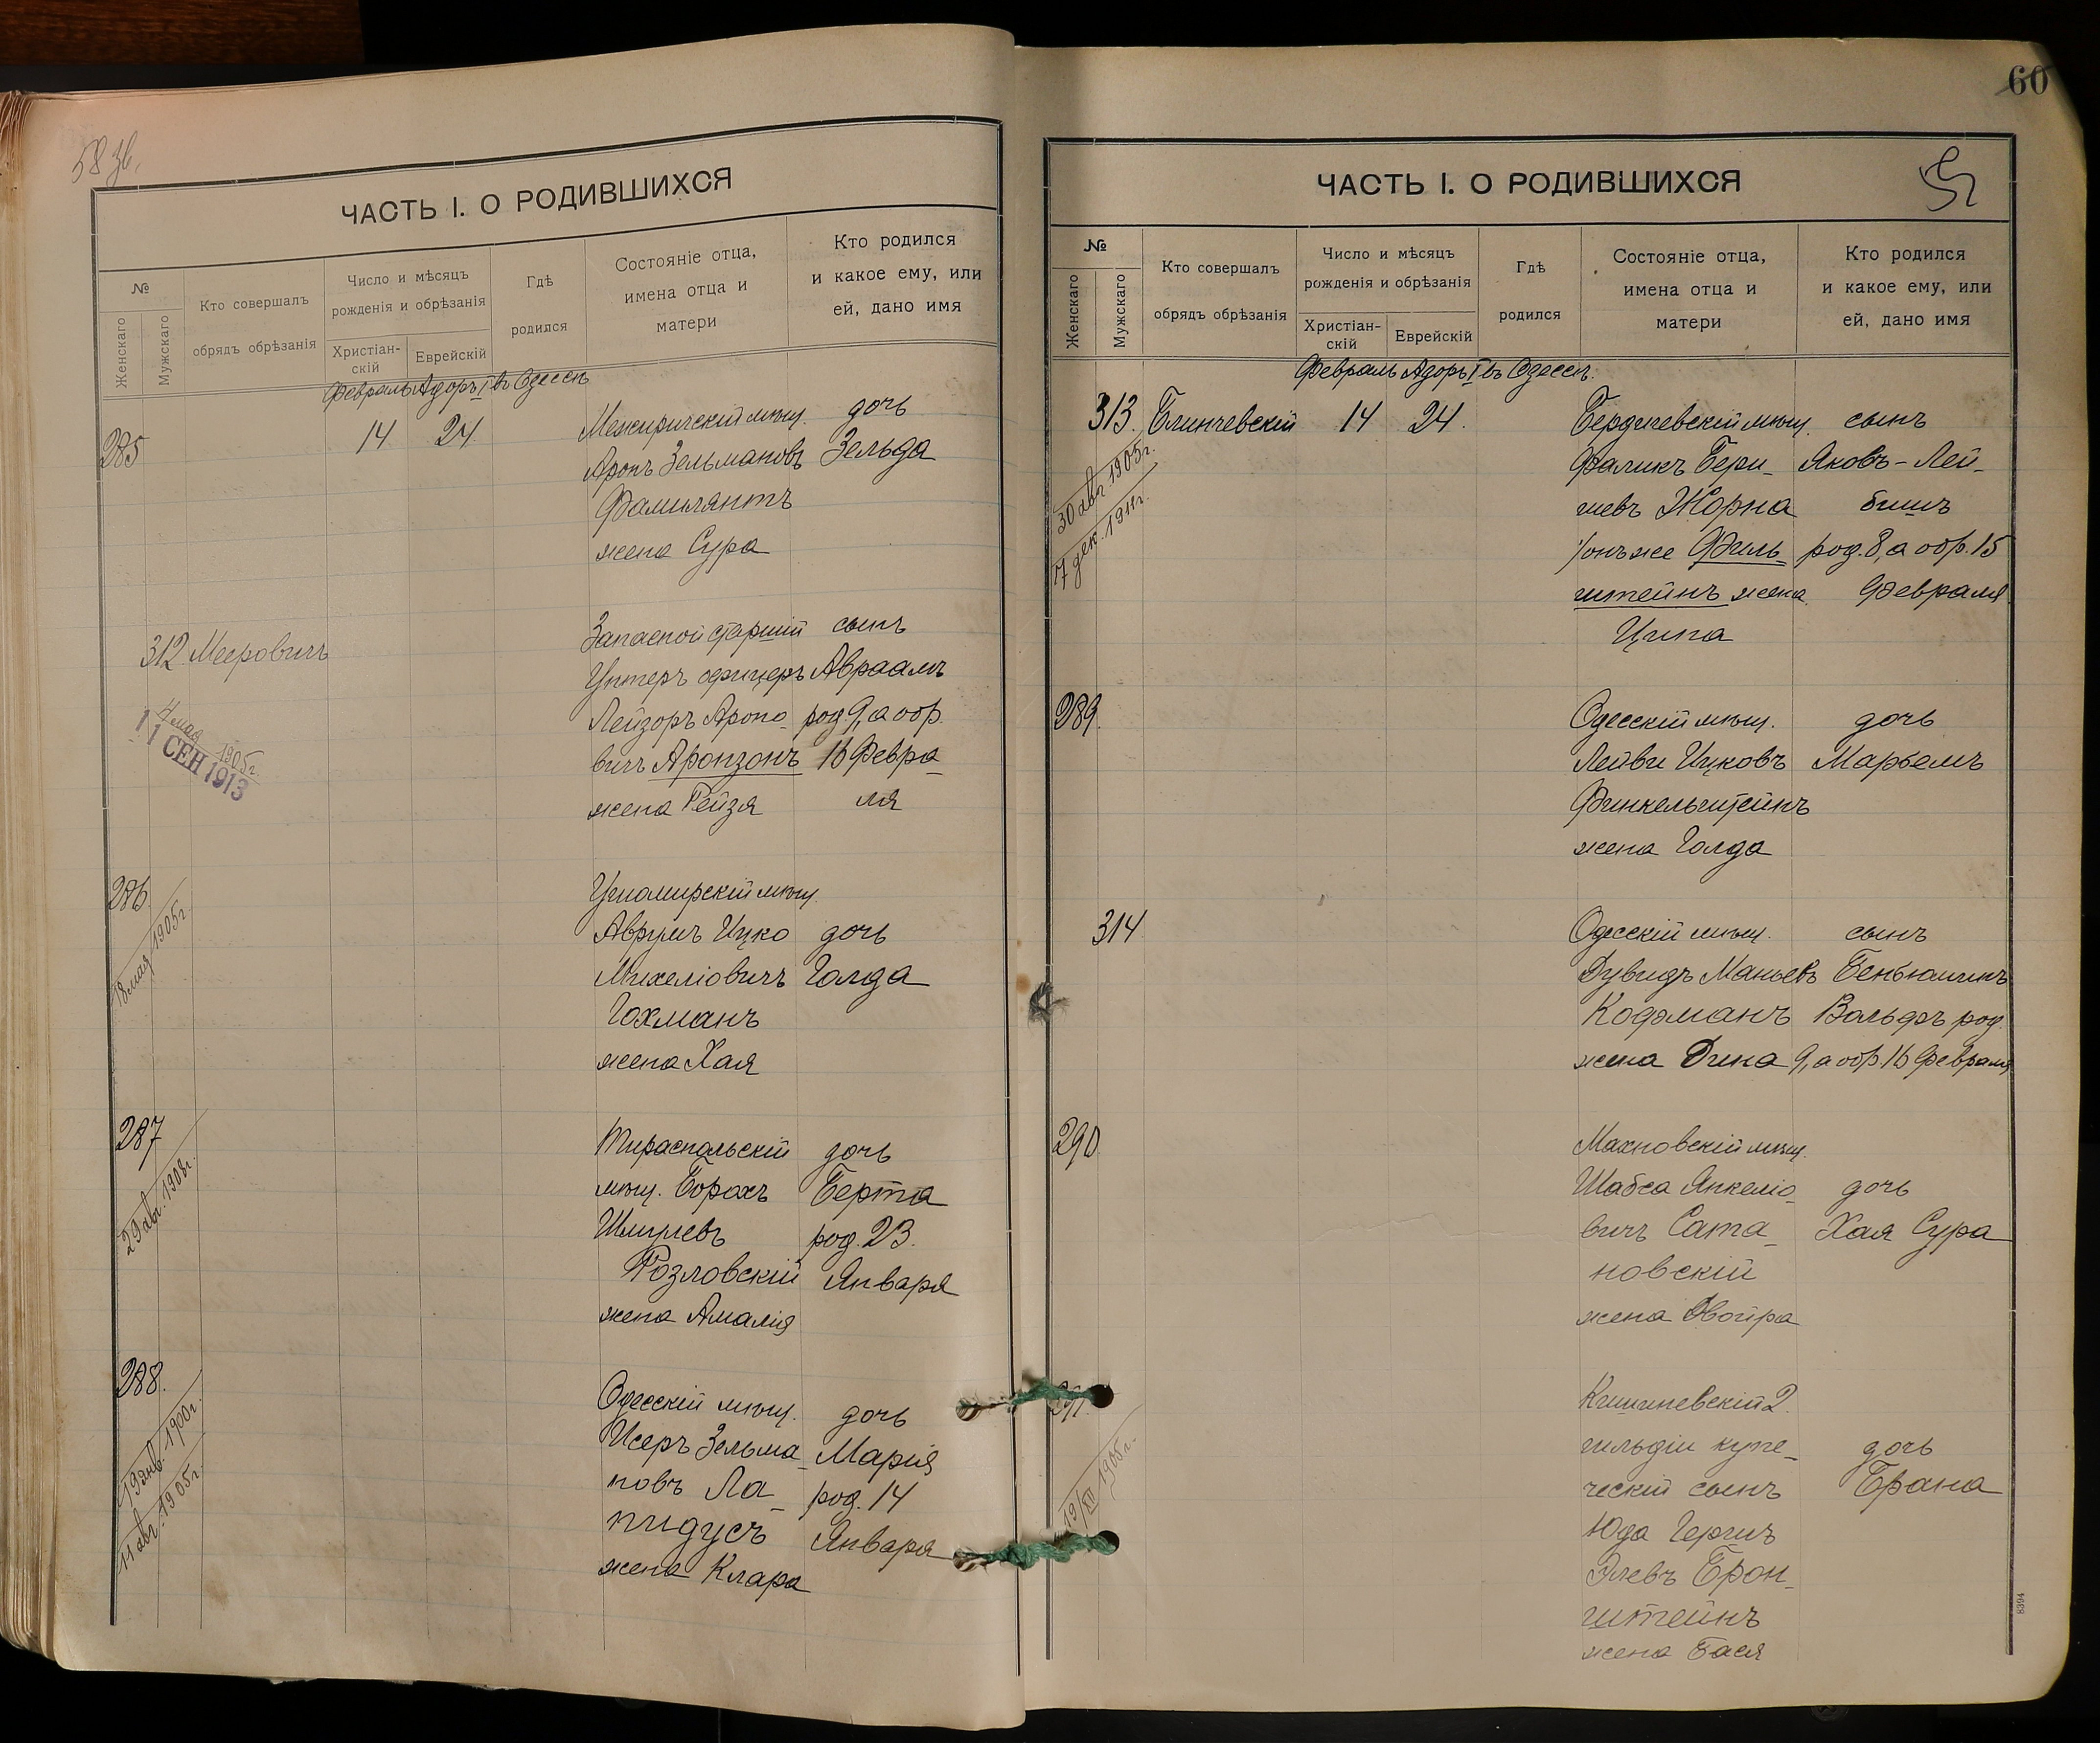 58 зв.
ЧАСТЬ I. О РОДИВШИХСЯ
№
Женскаго
Мужскаго
Кто совершалъ
обрядъ обрѣзанія
Число и мѣсяцъ
рожденія и обрѣзанія
Христіан-
скій
Еврейскій
Гдѣ
родился
Состояніе отца,
имена отца и
матери
Кто родился
и какое ему, или
ей, дано имя
Февраль Адоръ I въ Одессѣ
285 14 24 Межиричскій мѣщ. дочь
Аронъ Зельмановъ Зельда
Фамилянтъ
жена Сура
312 Мееровичъ Запасной старшій сынъ
Унтеръ офицеръ Авраамъ
ЛейзоръАроно- род. 9, а обр.
вичъ Аронзонъ 16 Февра-
жена Рейзя ля
4 мая 1905 г.
11 СЕН 1913
286 Ушомирскій мѣщ.
Аврумъ Ицко дочь
Михеліовичъ Голда
Гохманъ
жена Хая
18 мая 1905 г.
287 Тираспольскій дочь
мѣщ. Борохъ Берта
Шмулевъ род. 23
Розловскій Января
жена Амалія
29 авг. 1908 г.
288. Одесскій мѣщ. дочь
Исеръ Зельма- Марія
новъ Ла- род. 14
пидусъ Января
жена Клара
19 янв. 1900 г.
11 авг. 1905 г.
60
ЧАСТЬ I. О РОДИВШИХСЯ
№
Женскаго
Мужскаго
Кто совершалъ
обрядъ обрѣзанія
Число и мѣсяцъ
рожденія и обрѣзанія
Христіан-
скій
Еврейскій
Гдѣ
родился
Состояніе отца,
имена отца и
матери
Кто родился
и какое ему, или
ей, дано имя
Февраль Адоръ I въ Одессѣ.
313. Блинчевскій 14 24. Бердичевскій мѣщ. сынъ
Фаликъ Бери- Яковъ-Лей-
шевъ Жорна бишъ
онъ же Филь- род. 8, а обр. 15
штейнъ жена Февраля
Ципа
30 авг. 1905 г.
17 дек. 1911 г.
289. Одесскій мѣщ. дочь
Лейви Ицковъ Марьемъ
Финкельштейнъ
жена Голда
314 Одесскій мѣщ. сынъ
Дувидъ Маньевъ Беньюминъ
Кофманъ Вольфъ род.
жена Дина 9, а обр. 16 Февраля
290 Махновскій мѣщ.
Шабса Янкеліо- дочь
вичъ Сата- Хая Сура
новскій
жена Двойра
291. Кишиневскій 2.
гильдіи купе- дочь
ческій сынъ Брана
Юда Гершъ
Элевъ Брон-
штейнъ
жена Бася
19/XII 1905 г.
8394